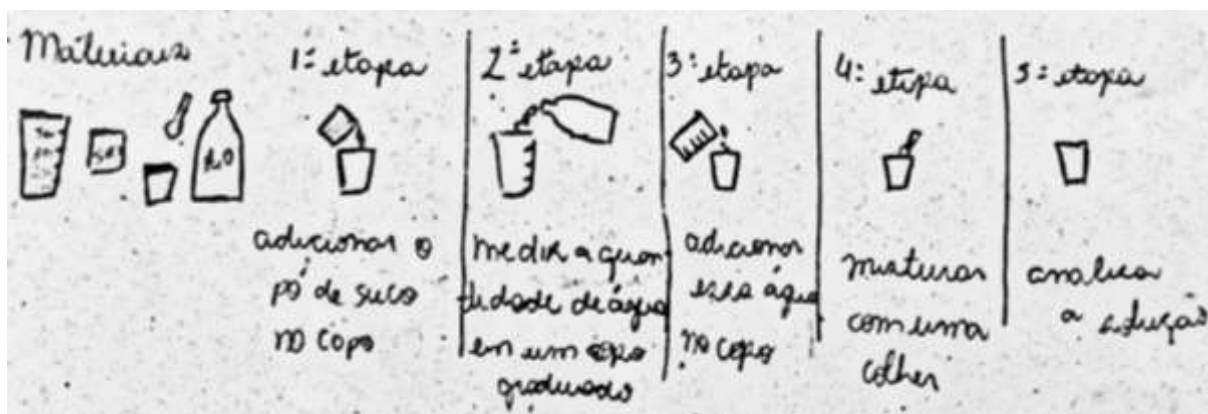 Materiais
H2O
1ª etapa
adicionar o
pó de suco
no copo
2ª etapa
medir a quan
tidade de água
em um copo
graduado
3ª etapa
adicionar
essa água
no copo
4ª etapa
misturar
com uma
colher
5ª etapa
analisar
a solução